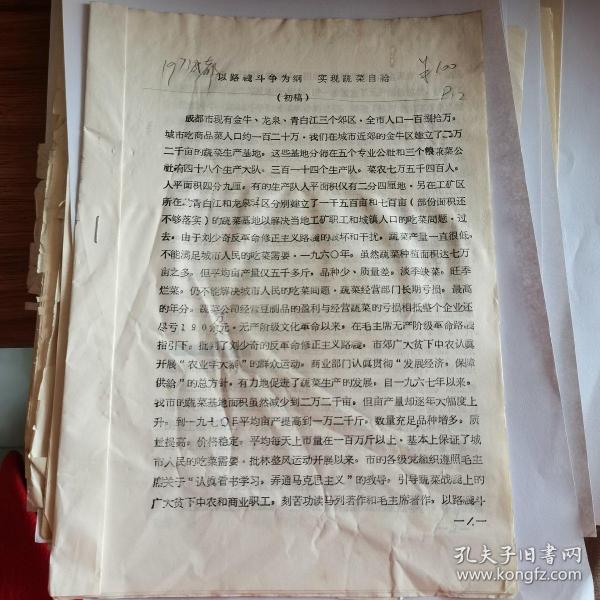 1971成都
¥100
P12
以路线斗争为纲 实现蔬菜自给
(初稿)
成都市现有金牛、龙泉、青白江三个郊区。全市人口一百捌拾万。
城市吃商品菜人口约一百二十万。我们在城市近郊的金牛区建立了二万
二千亩的蔬菜生产基地。这些基地分佈在五个专业公社和三个粮菜公
社的四十八个生产大队、三百一十四个生产队。菜农七万五千四百人。
人平面积四分九厘,有的生产队人平面积仅有二分四厘地。另在工矿区
所在的青白江和龙泉区分别建立了一千五百亩和七百亩(部份面积还
不够落实)的蔬菜基地以解决当地工矿职工和城镇人口的吃菜问题。过
去,由于刘少奇反革命修正主义路线的破坏和干扰,蔬菜产量一直很低,
不能满足城市人民的吃菜需要。一九六〇年,虽然蔬菜种植面积达七万
亩之多,但平均亩产量仅五千多斤,品种少、质量差,淡季缺菜,旺季
烂菜,仍不能解决城市人民的吃菜问题。蔬菜经营部门长期亏损,最高
的年分,蔬菜公司经营豆制品的盈利与经营蔬菜的亏损相抵整个企业还
尽亏190万元。无产阶级文化革命以来,在毛主席无产阶级革命路线
指引下,批判了刘少奇的反革命修正主义路线,市郊广大贫下中农认真
开展“农业学大寨”的群众运动,商业部门认真贯彻“发展经济,保障
供给”的总方针,有力地促进了蔬菜生产的发展,自一九六七年以来,
我市的蔬菜基地面积虽然减少到二万二千亩,但亩产量却逐年大幅度上
升,到一九七〇年平均亩产提高到一万二千斤,数量充足品种增多,质
量提高,价格稳定,平均每天上市量在一百万斤以上。基本上保证了城
市人民的吃菜需要。批林整风运动开展以来,市的各级党组织遵照毛主
席关于“认真看书学习,弄通马克思主义”的教导,引导蔬菜战线上的
广大贫下中农和商业职工,刻苦功读马列著作和毛主席著作,以路线斗
—1.—
孔夫子旧书网
www.kongfz.com